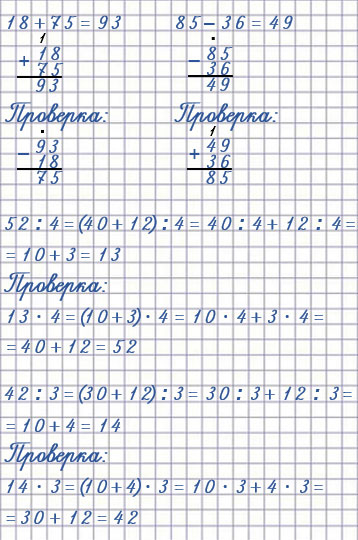 18+75=93 85-36=49
1 .
+ 18 - 85
75 36
93 49
Проверка: Проверка:
. 1
- 93 + 49
18 36
75 85
52 : 4 = (40+12) : 4 = 40 : 4 + 12 : 4 =
= 10 + 3 = 13
Проверка:
13 · 4 = (10+3) · 4 = 10 · 4 + 3 · 4 =
= 40 + 12 = 52
42 : 3 = (30+12) : 3 = 30 : 3 + 12 : 3 =
= 10 + 4 = 14
Проверка:
14 · 3 = (10+4) · 3 = 10 · 3 + 4 · 3 =
= 30 + 12 = 42